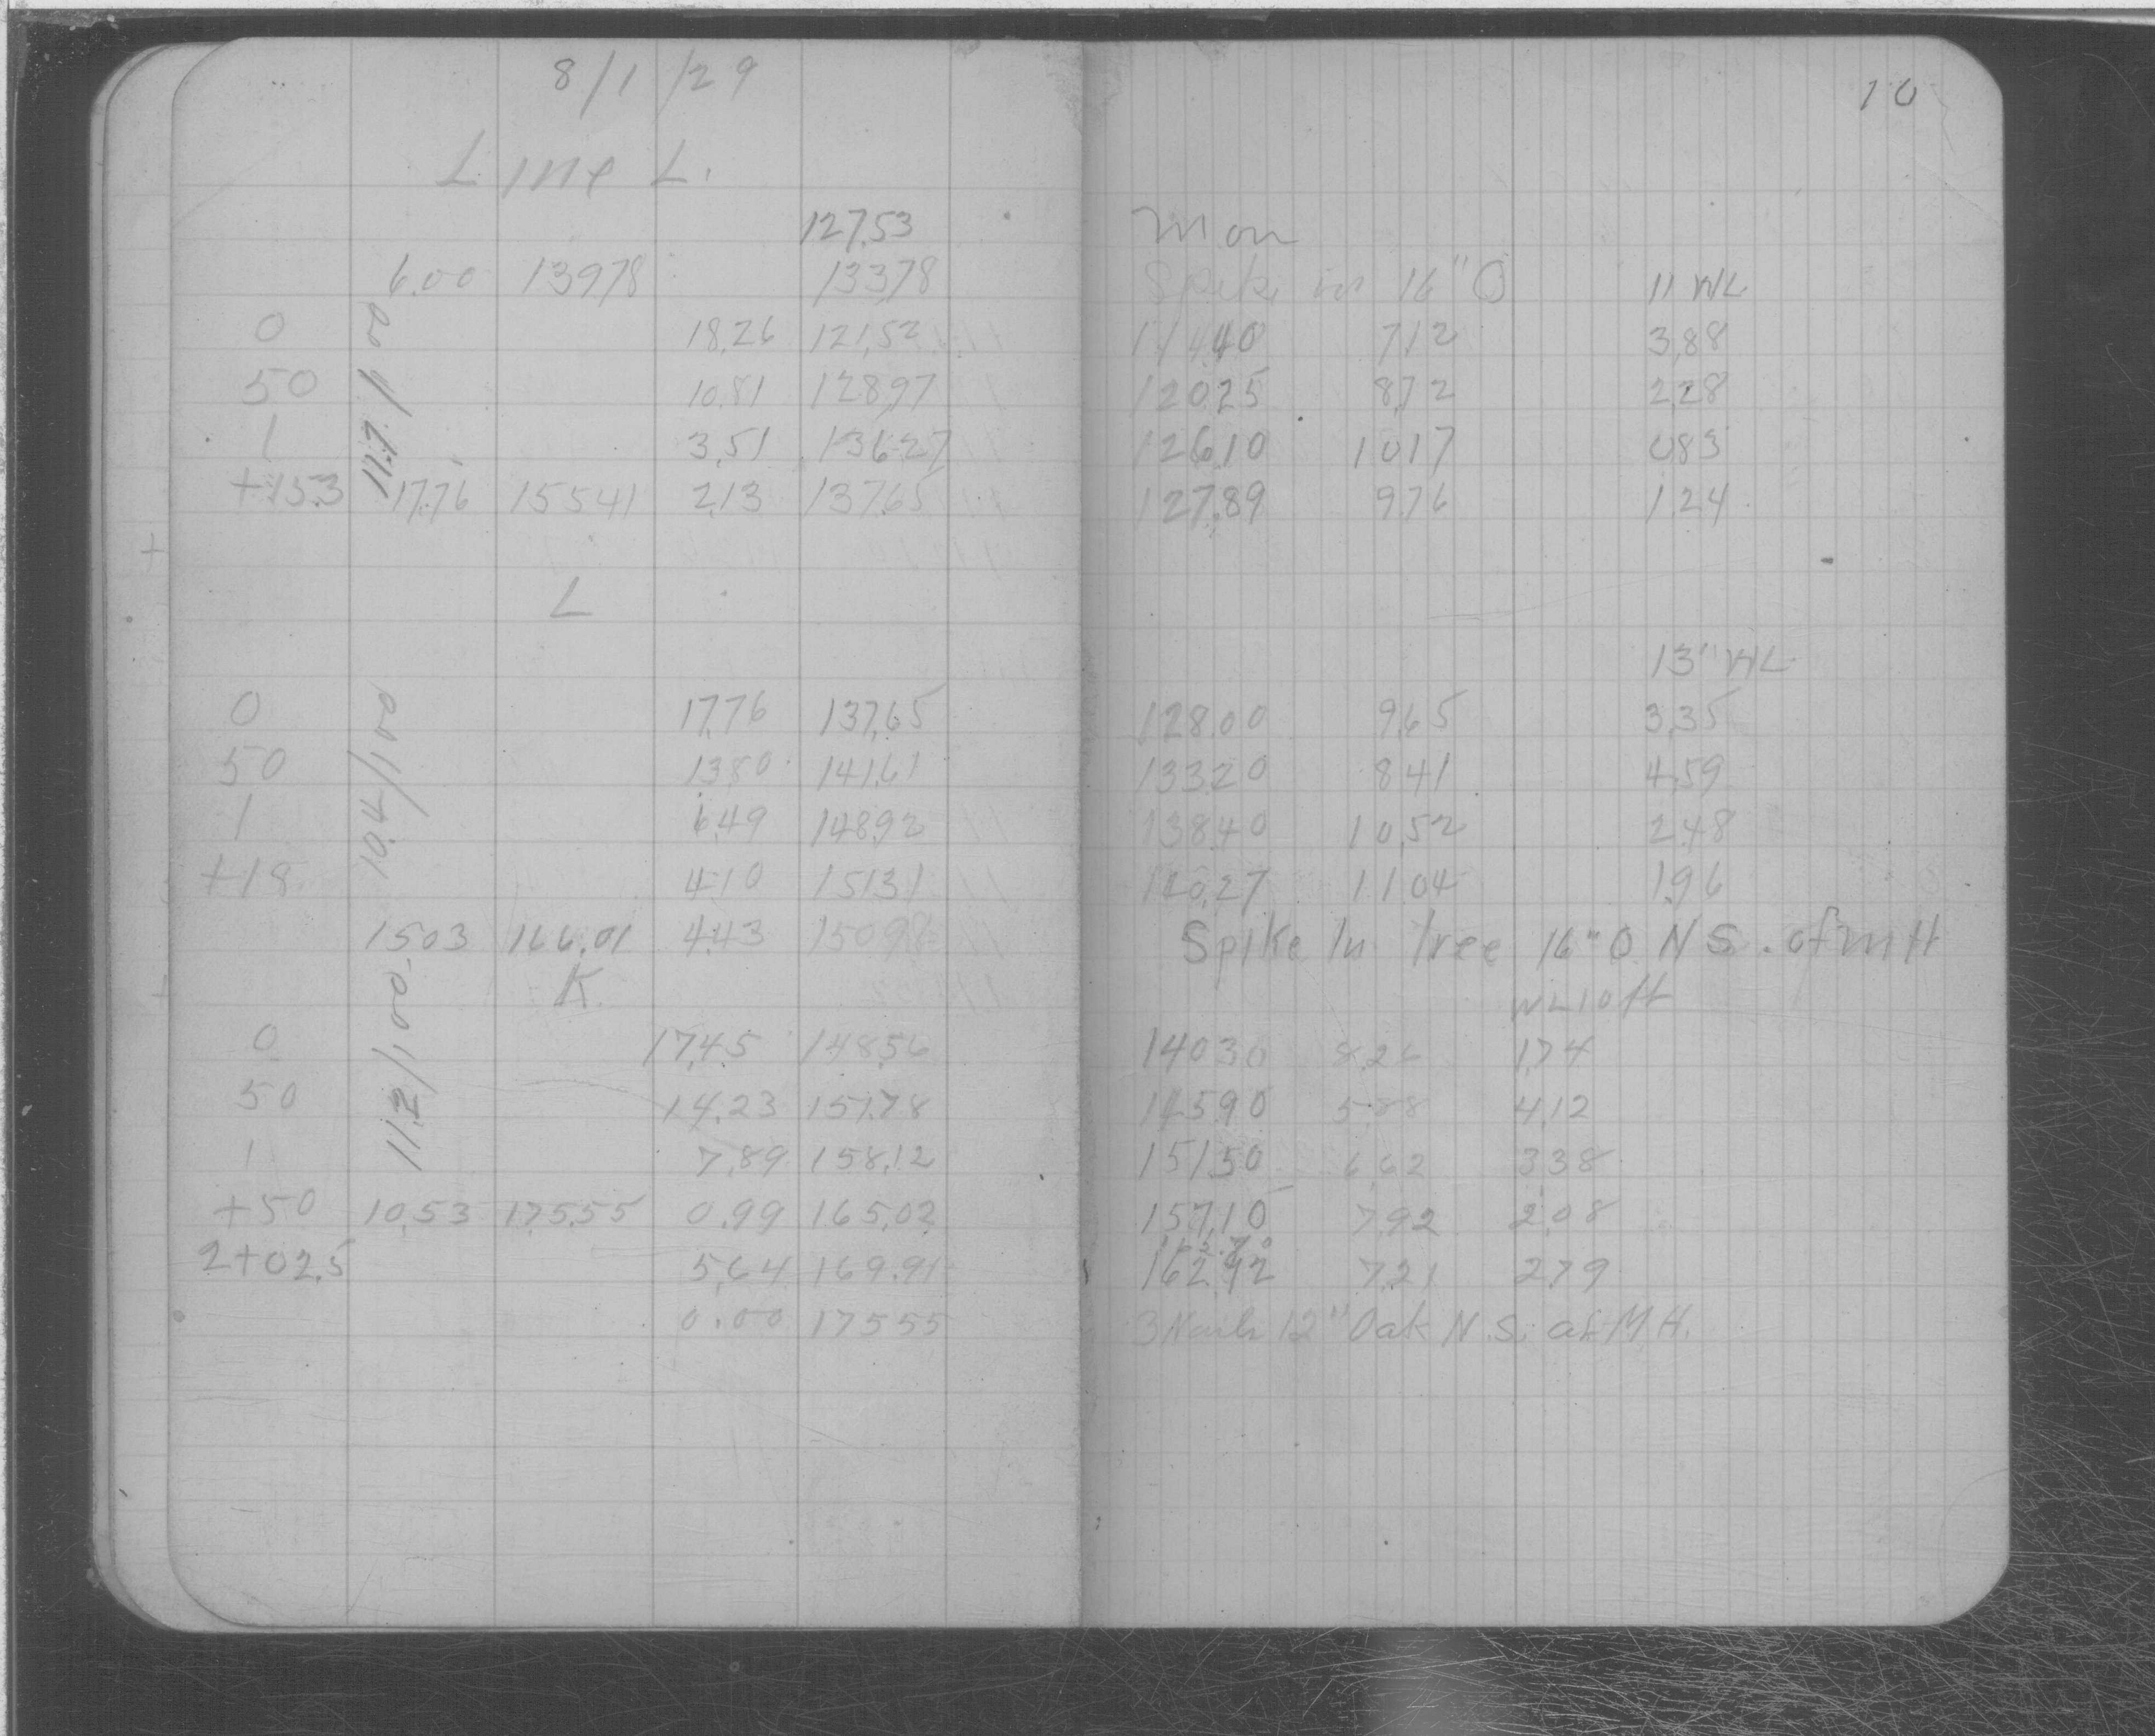 8/1/29
10
Line L.
127.53 Mon
6.00 139.78 133.78 Spike in 16" O 11 WL
11.7/100
0 18.26 121.52 114.40 7.12 3.88
50 10.81 128.97 120.25 8.72 2.28
1 3.51 136.27 126.10 10.17 0.83
+15.3 17.76 155.41 2.13 137.65 127.89 9.76 1.24
L
13' WL
10.4/100
0 17.76 137.65 128.00 9.65 3.35
50 13.80 141.61 133.20 8.41 4.59
1 6.49 148.92 138.40 10.52 2.48
+18 4.10 151.31 140.27 11.04 1.96
15.03 166.01 4.43 150.98 Spike In Tree 16" O N S. of MH
K. WL 10 ft
11.2/100
0 17.45 148.56 140.30 8.26 1.74
50 14.23 151.78 145.90 5.88 4.12
1 7.89 158.12 151.50 6.62 3.38
+50 10.53 175.55 0.99 165.02 157.10 7.92 2.08
2+02.5 5.64 169.91 162.70 7.21 2.79
0.00 175.55 3 Nails 12" Oak N.S. of M.H.